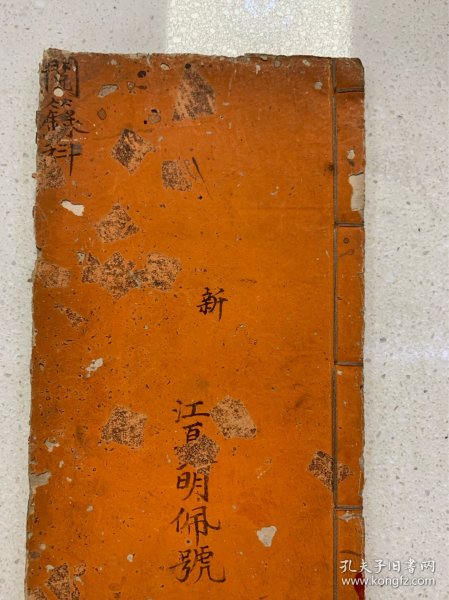 開籙科
新
江百明佩號
孔夫子旧书网
www.kongfz.com